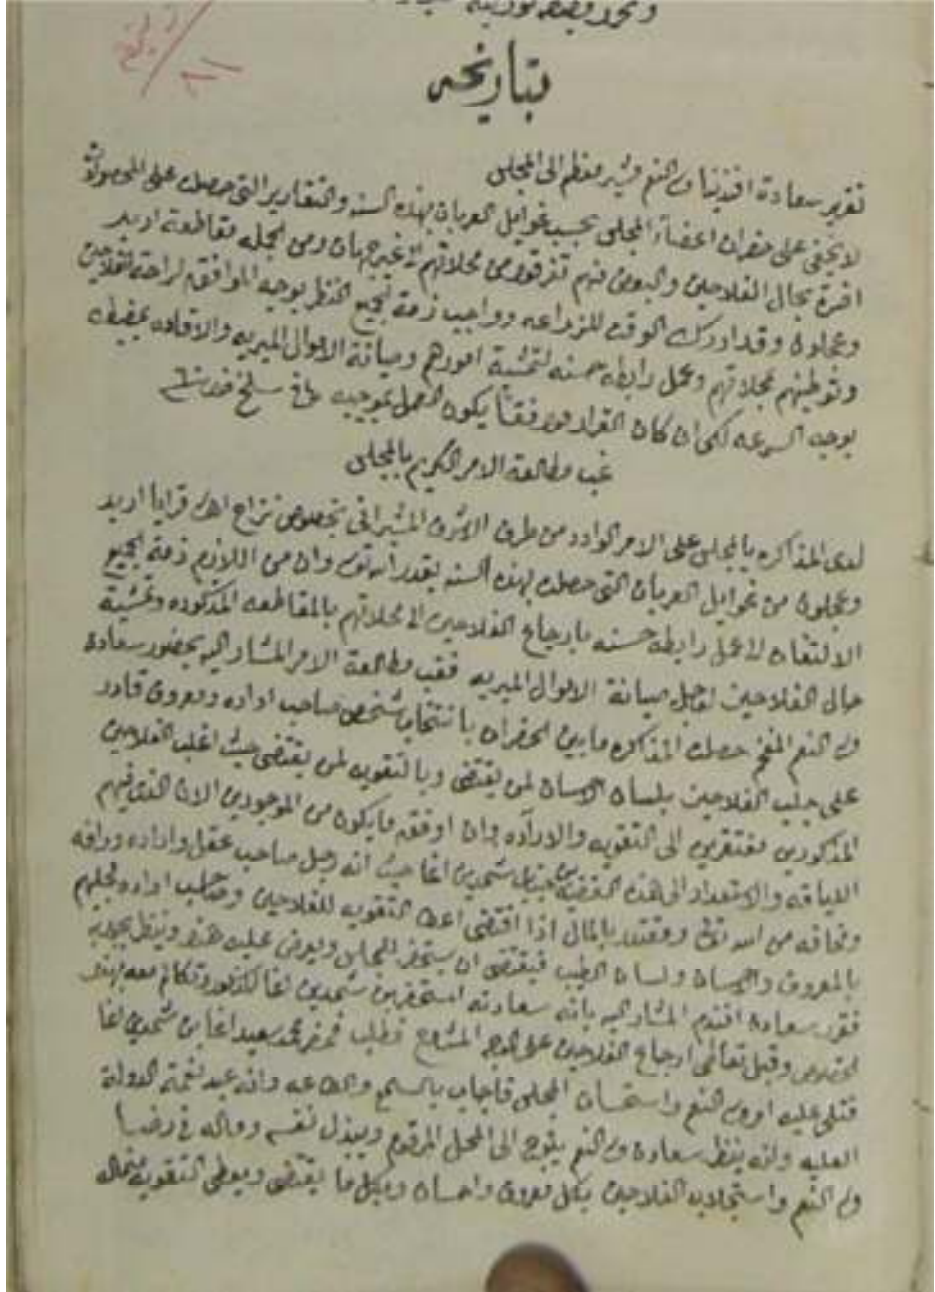 بتاريخه
تقرير سعادة افندينا ولي النعم مشير معظم الى المجلس
لا يخفى على حضرات اعضاء المجلس بحسب غوايل العربان بهذه السنه والتقارير التي حصلت على المحصولات
اضرة بحال الفلاحين والبعض منهم تفرقوا من محلاتهم الى غير جهات ومن الجمله مقاطعة اربد
وعجلون وقد ادرك الوقت للزراعه وواجب ذمة الجميع النظر بوجه الموافق لراحة الفلاحين
وتوطينهم بمحلاتهم وعمل رابطه حسنه لتمشية امورهم وصيانة الاموال الميريه والافاده بمضبطه
بوجه السرعه لكي ان كان القرار موافقاً يكون العمل بموجبه في سلخ
غب مطالعة الامر الكريم بالمجلس
لدى المذاكره بالمجلس على الامر الوارد من طرف الاشرف المشيراني بخصوص نزاح اهالي قرايا اربد
وعجلون من غوايل العربان التي حصلت بهذه السنه بقدر الله تعالى وان من اللازم ذمة الجميع
الالتفات الى عمل رابطه حسنه بارجاع الفلاحين الى محلاتهم بالمقاطعه المذكوره وتمشية
حال الفلاحين لاجل صيانة الاموال الميريه فغب مطالعة الامر المشار اليه بحضور سعادة
ولي النعم المفخم حصلت المذاكره ما بين الحضرات بانتخاب شخص صاحب اداره ومعروف قادر
على جلب الفلاحين بلسان الاحسان لمن يقتضى وبالتقويه لمن يقتضى حيث اغلب الفلاحين
المذكورين مفتقرين الى التقويه والاراده وان اوفق ما يكون من الموجودين الان الذي فيهم
اللياقه والاستعداد الى هذه القضيه جناب شمدين اغا حيث انه رجل صاحب عقل واداره ورافه
ومخافه من الله تعالى ومقتدر بالمال اذا اقتضى اعطا التقويه للفلاحين وصاحب اداره تجلبهم
بالمعروف والاحسان ولسان الطيب فيقتضى ان يستحضر للمجلس ويعرض عليه هذا وينظر بجوابه
فقرر سعادة افندم المشار اليه بانه سعادته استحضر شمدين اغا المذكور وتكلم معه بهذا
الخصوص وقبل تعالى ارجاع الفلاحين على الوجه المشروح فطلب فحضر محمد سعيد اغا بن شمدين اغا
فتلى عليه امر ولي النعم واستحسان المجلس فاجاب بالسمع والطاعه وانه عبد نعمة الدولة
العليه وانه بنظر سعادة ولي النعم يتوجه الى المحل المرقوم ويبذل نفسه وماله في رضا
ولي النعم واستجلاب الفلاحين بكل معروف واحسان وبكل ما يقتضى ويعطى التقويه بماله